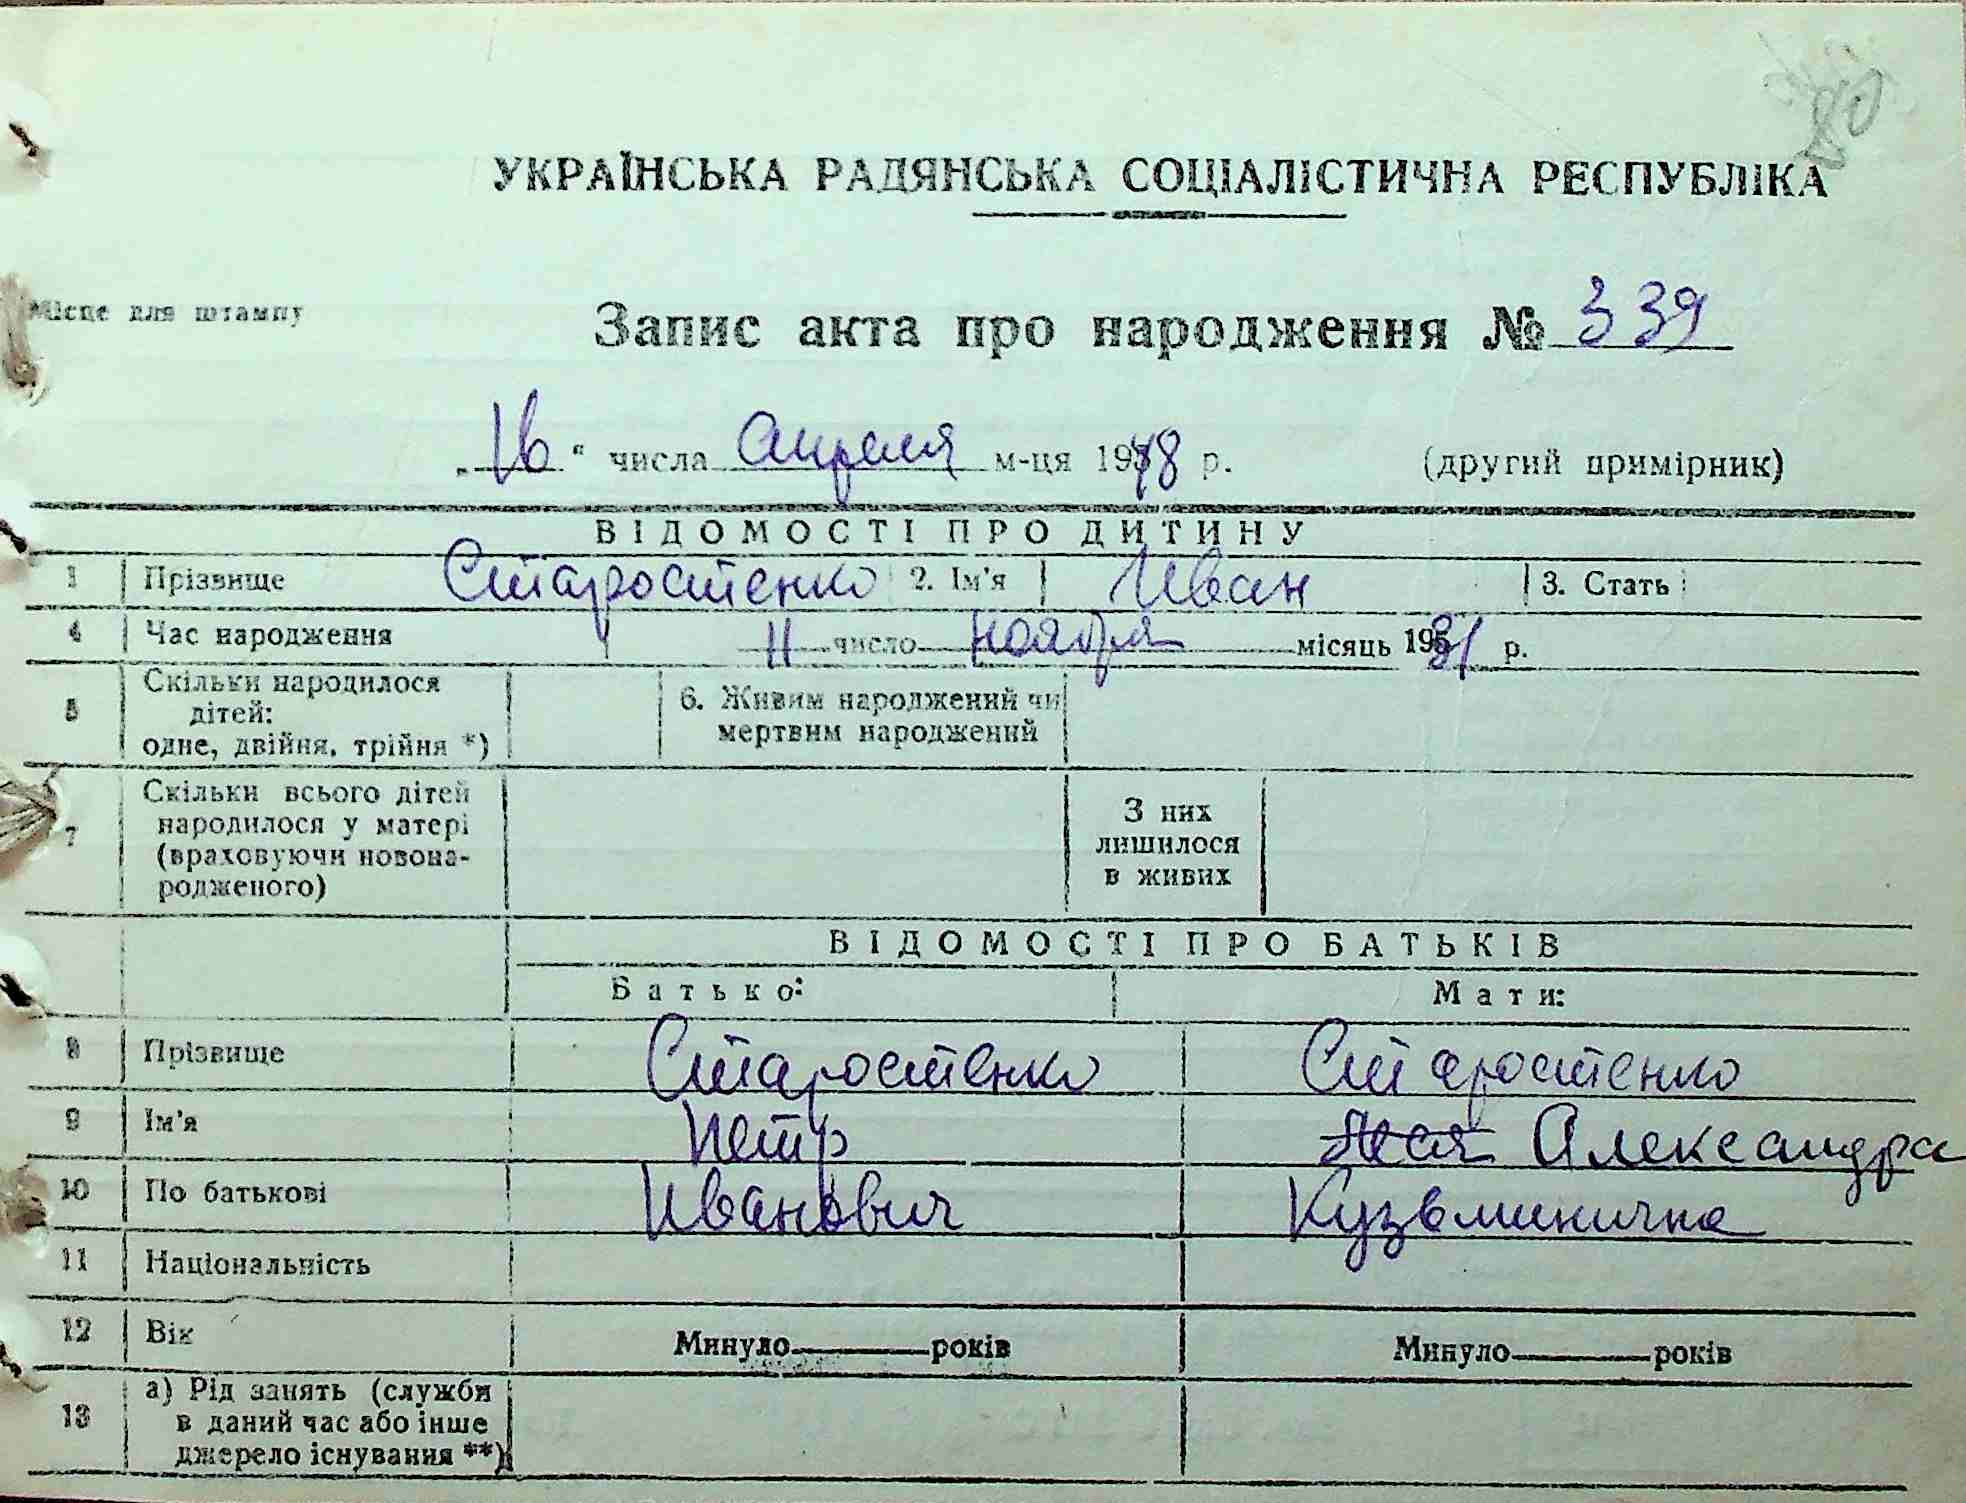 80
УКРАЇНСЬКА РАДЯНСЬКА СОЦІАЛІСТИЧНА РЕСПУБЛІКА
Місце для штампу
Запис акта про народження № 339
„16“ числа апреля м-ця 1948 р. (другий примірник)
ВІДОМОСТІ ПРО ДИТИНУ
1 Прізвище Старостенко 2. Ім'я Иван 3. Стать
4 Час народження 11 число ноября місяць 1931 р.
5 Скільки народилося дітей: одне, двійня, трійня *)
6. Живим народжений чи мертвим народжений
7 Скільки всього дітей народилося у матері (враховуючи новона-родженого)
З них лишилося в живих
ВІДОМОСТІ ПРО БАТЬКІВ
Батько: Мати:
8 Прізвище Старостенко Старостенко
9 Ім'я Петр Александра
10 По батькові Иванович Кузьминична
11 Національність
12 Вік Минуло років Минуло років
13 а) Рід занять (служби в даний час або інше джерело існування **)